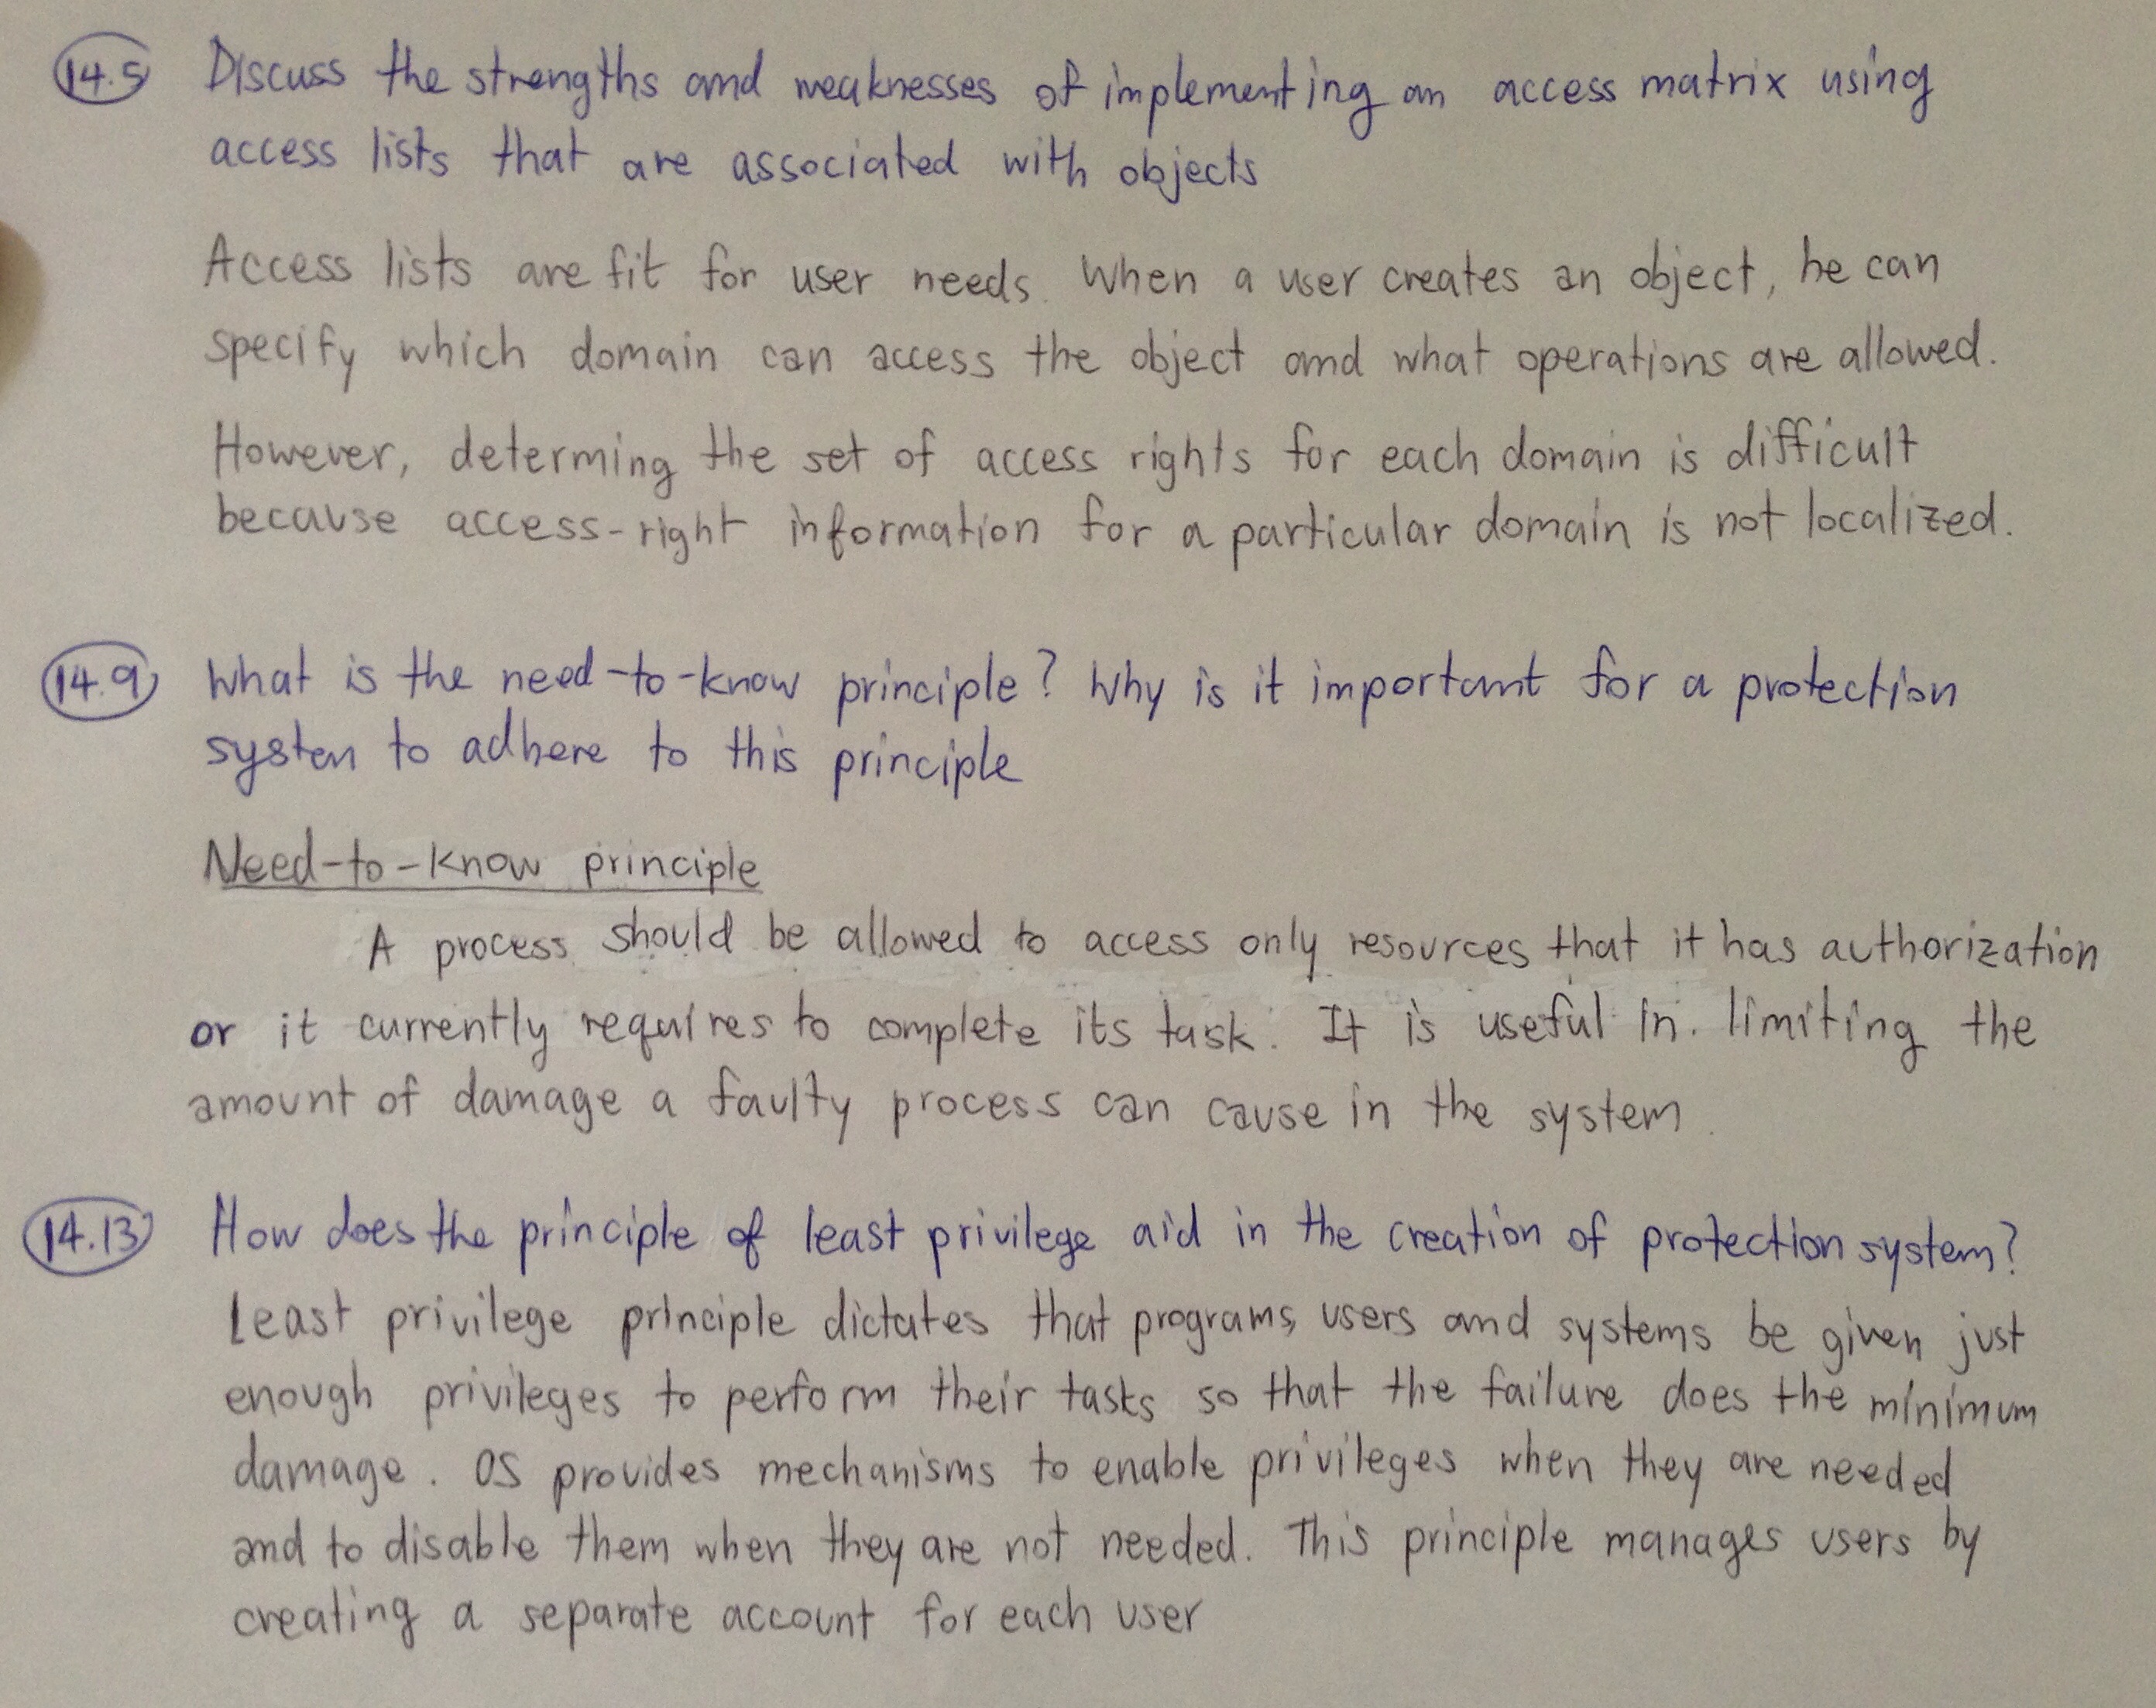 14.5 Discuss the strengths and weaknesses of implementing an access matrix using
access lists that are associated with objects
Access lists are fit for user needs. When a user creates an object, he can
specify which domain can access the object and what operations are allowed.
However, determing the set of access rights for each domain is difficult
because access-right information for a particular domain is not localized.
14.9 What is the need-to-know principle? Why is it important for a protection
system to adhere to this principle
Need-to-know principle
A process should be allowed to access only resources that it has authorization
or it currently requires to complete its task. It is useful in limiting the
amount of damage a faulty process can cause in the system.
14.13 How does the principle of least privilege aid in the creation of protection system?
Least privilege principle dictates that programs, users and systems be given just
enough privileges to perform their tasks so that the failure does the minimum
damage. OS provides mechanisms to enable privileges when they are needed
and to disable them when they are not needed. This principle manages users by
creating a separate account for each user